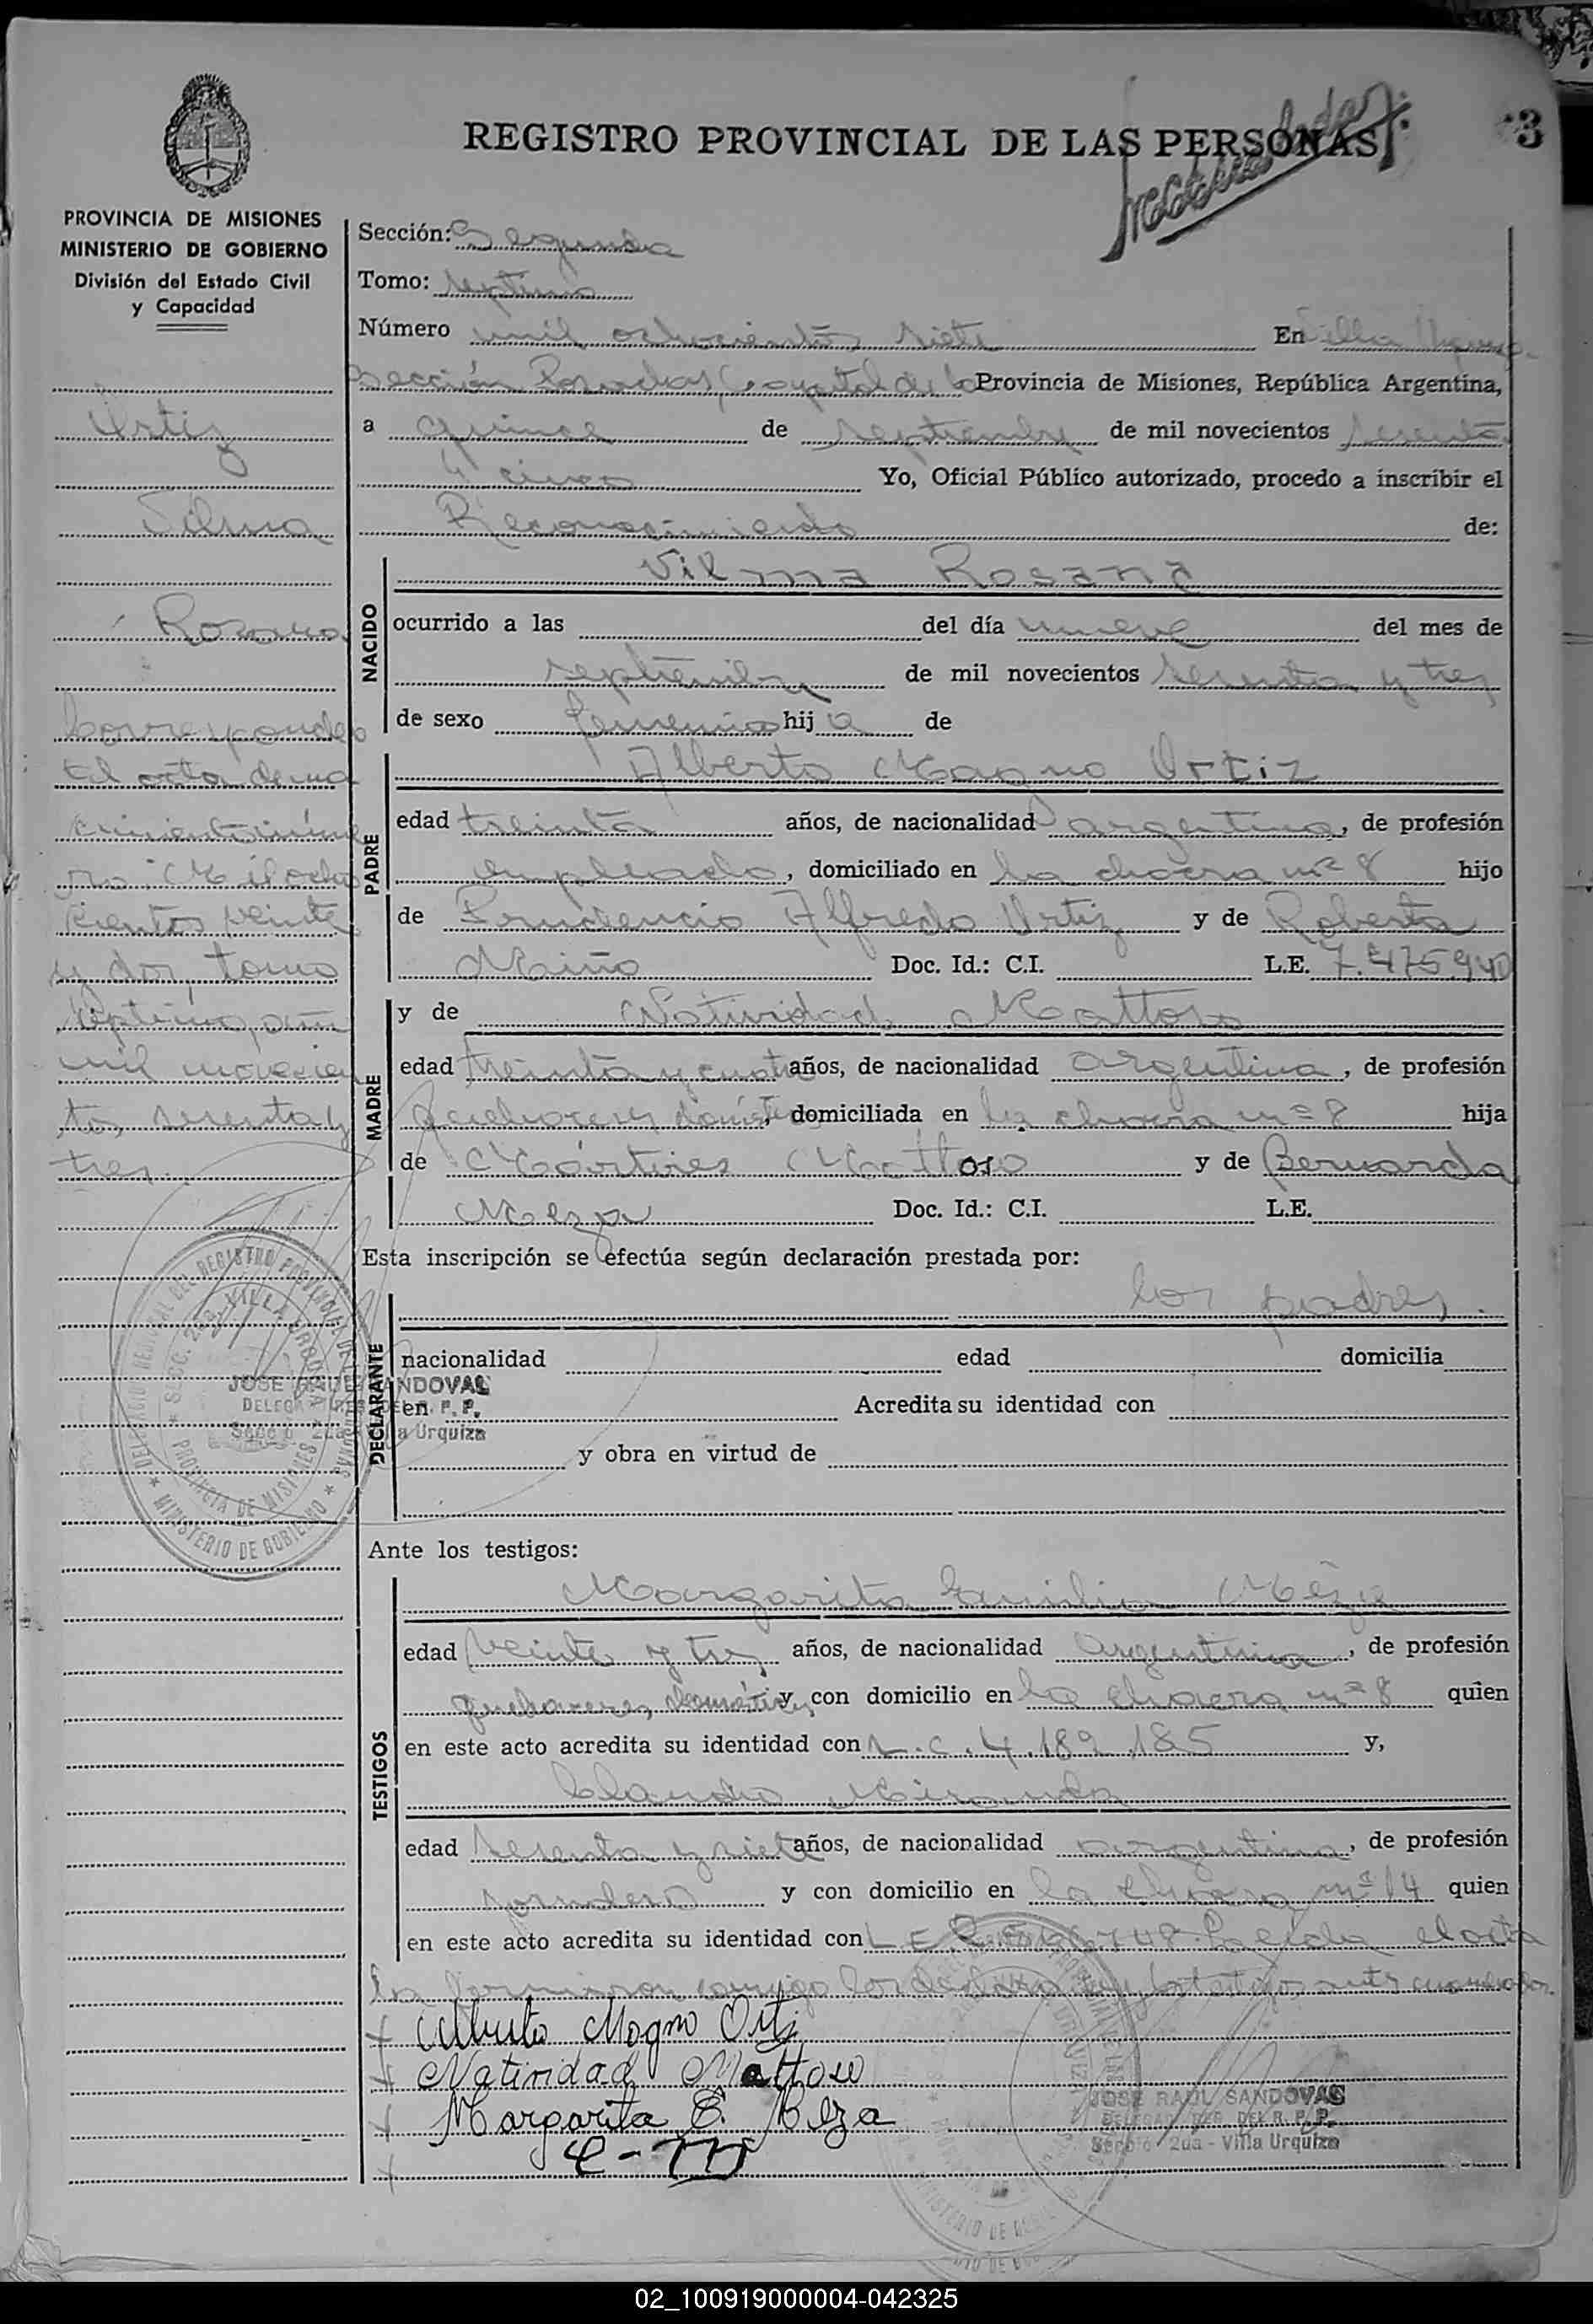 REGISTRO PROVINCIAL DE LAS PERSONAS
3
PROVINCIA DE MISIONES
MINISTERIO DE GOBIERNO
División del Estado Civil
y Capacidad
Ortiz
Vilma
Rosana
Corresponde
al acta de na
cimiento núme
ro: Mil ocho
cientos veinte
y dos, tomo
septimo, año
mil novecien
tos sesenta y
tres.
Sección: Segunda
Tomo: septimo
Número mil ochocientos siete En Villa Urquiza
sección Posadas, Capital de la Provincia de Misiones, República Argentina,
a quince de septiembre de mil novecientos sesenta
y cinco Yo, Oficial Público autorizado, procedo a inscribir el
Reconocimiento de:
NACIDO
Vilma Rosana
ocurrido a las del día nueve del mes de
septiembre de mil novecientos sesenta y tres
de sexo femenino hija de
PADRE
Alberto Magno Ortiz
edad treinta años, de nacionalidad argentina, de profesión
empleado, domiciliado en la chacra nº 8 hijo
de Prudencio Alfredo Ortiz y de Roberta
Miño Doc. Id.: C.I. L.E. 7.475.940
MADRE
y de Natividad Mattoso
edad treinta y cuatro años, de nacionalidad argentina, de profesión
quehaceres domést, domiciliada en la chacra nº 8 hija
de Mártires Mattoso y de Bernarda
Meza Doc. Id.: C.I. L.E.
Esta inscripción se efectúa según declaración prestada por:
DECLARANTE
los padres.
nacionalidad edad domicilia
en Acredita su identidad con
y obra en virtud de
JOSE RAUL SANDOVAL
DELEGADO REG. DEL R. P. P.
Sección 2da - Villa Urquiza
DELEGACION REGIONAL DEL REGISTRO PROVINCIAL DE LAS PERSONAS
SECC. 2da. VILLA URQUIZA
PROVINCIA DE MISIONES
MINISTERIO DE GOBIERNO
Ante los testigos:
TESTIGOS
Margarita Emilia Meza
edad veinte y tres años, de nacionalidad argentina, de profesión
quehaceres domésticos y con domicilio en la chacra nº 8 quien
en este acto acredita su identidad con L.C. 4.189.185 y,
Claudio Miranda
edad sesenta y siete años, de nacionalidad argentina, de profesión
jornalero y con domicilio en la chacra nº 14 quien
en este acto acredita su identidad con L.E. Leída el acta
la firmaron conmigo los
Alberto Magno Ortiz
Natividad Mattoso
Margarita E. Meza
C-M
JOSE RAUL SANDOVAL
DELEGADO REG. DEL R. P. P.
Sección 2da - Villa Urquiza
02_100919000004-042325